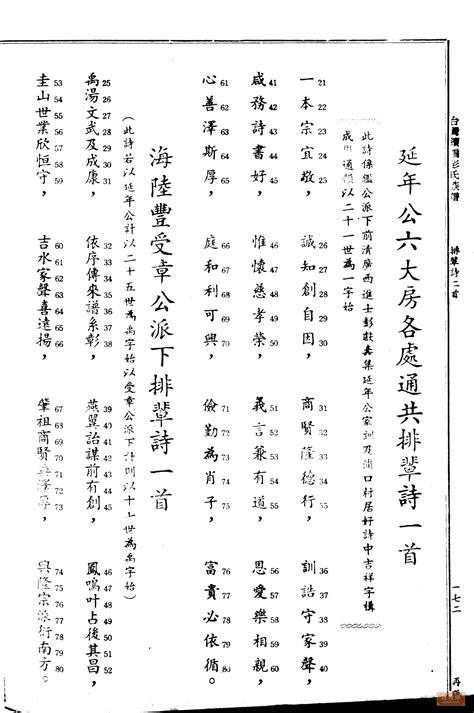 台灣 彭氏族譜 排輩詩二首 一七二
延年公六大房各處通共排輩詩一首
此詩係鑑公派下前清廣西進士彭 集延年公家訓及浦口村居好詩中吉祥字構
成 通 以二十一世為一字始
一21本22宗23宜24敬25，誠26知27創28自29因30，商31賢32隆33德34行35，訓36誥37守38家39聲40，
咸41務42詩43書44好45，惟46懷47慈48孝49榮50，義51言52兼53有54道55，恩56愛57樂58相59親60，
心61善62澤63斯64厚65，庭66和67利68可69興70，儉71勤72為73肖74子75，富76貴77必78依79循80。
海陸豐受章公派下排輩詩一首
（此詩若以延年公計以二十五世為禹字始以受章公派下計則以十七世為禹字始）
禹25湯26文27武28及29成30康31，依32序33傳34來35譜36系37彰38，燕39翼40詒41謀42前43有44創45，鳳46鳴47叶48占49後50其51昌52，
圭53山54世55業56欣57恒58守59，吉60水61家62聲63喜64達65揚66，肇67祖68商69賢70 71澤72厚73，興74隆75宗76派77衍78南79方80。